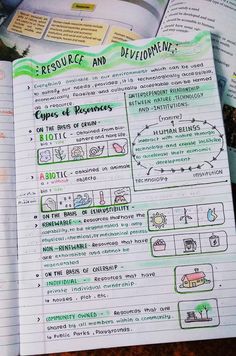 RESOURCE AND DEVELOPMENT
Everything available in our environment which can be used
to satisfy our needs, provided, it is technologically accessible,
economically feasible and culturally acceptable can be termed
as a resource.
Types of Resources
ON THE BASIS OF ORIGIN -
BIOTIC - Obtained from bio-
ABIOTIC - obtained in
objects
ON THE BASIS OF EXHAUSTIBILITY -
RENEWABLE - Resources that have the
capability to be regenerated by any
physical, chemical, or mechanical process
NON-RENEWABLE - Resources that
are exhaustible and cannot be
ON THE BASIS OF OWNERSHIP -
INDIVIDUAL - Resources that have
private individual ownership.
Houses, Plot, etc.
COMMUNITY OWNED - Resources that are
shared by all members within a community.
Public Parks, Playgrounds.
INTERDEPENDENT RELATIONSHIP
BETWEEN NATURE, TECHNOLOGY
AND INSTITUTIONS.
(nature)
HUMAN BEINGS
interact with nature through
technology and create institutions
to accelerate their economic
development
TECHNOLOGY
INSTITUTION